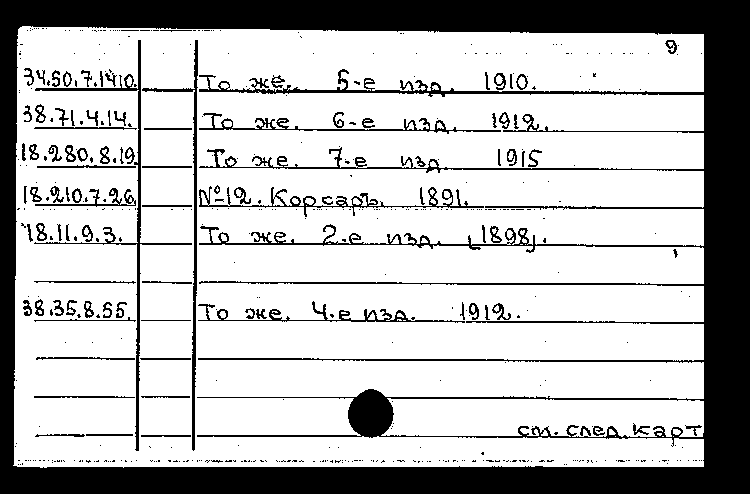 9
34.50.7.1410. То же. 5-е изд. 1910.
38.71.4.14. То же. 6-е изд. 1912.
18.280.8.19. То же. 7-е изд. 1915
18.210.7.26. №12. Корсаръ. 1891.
18.11.9.3. То же. 2-е изд. [1898].
38.35.8.55. То же. 4-е изд. 1912.
см. след. карт.